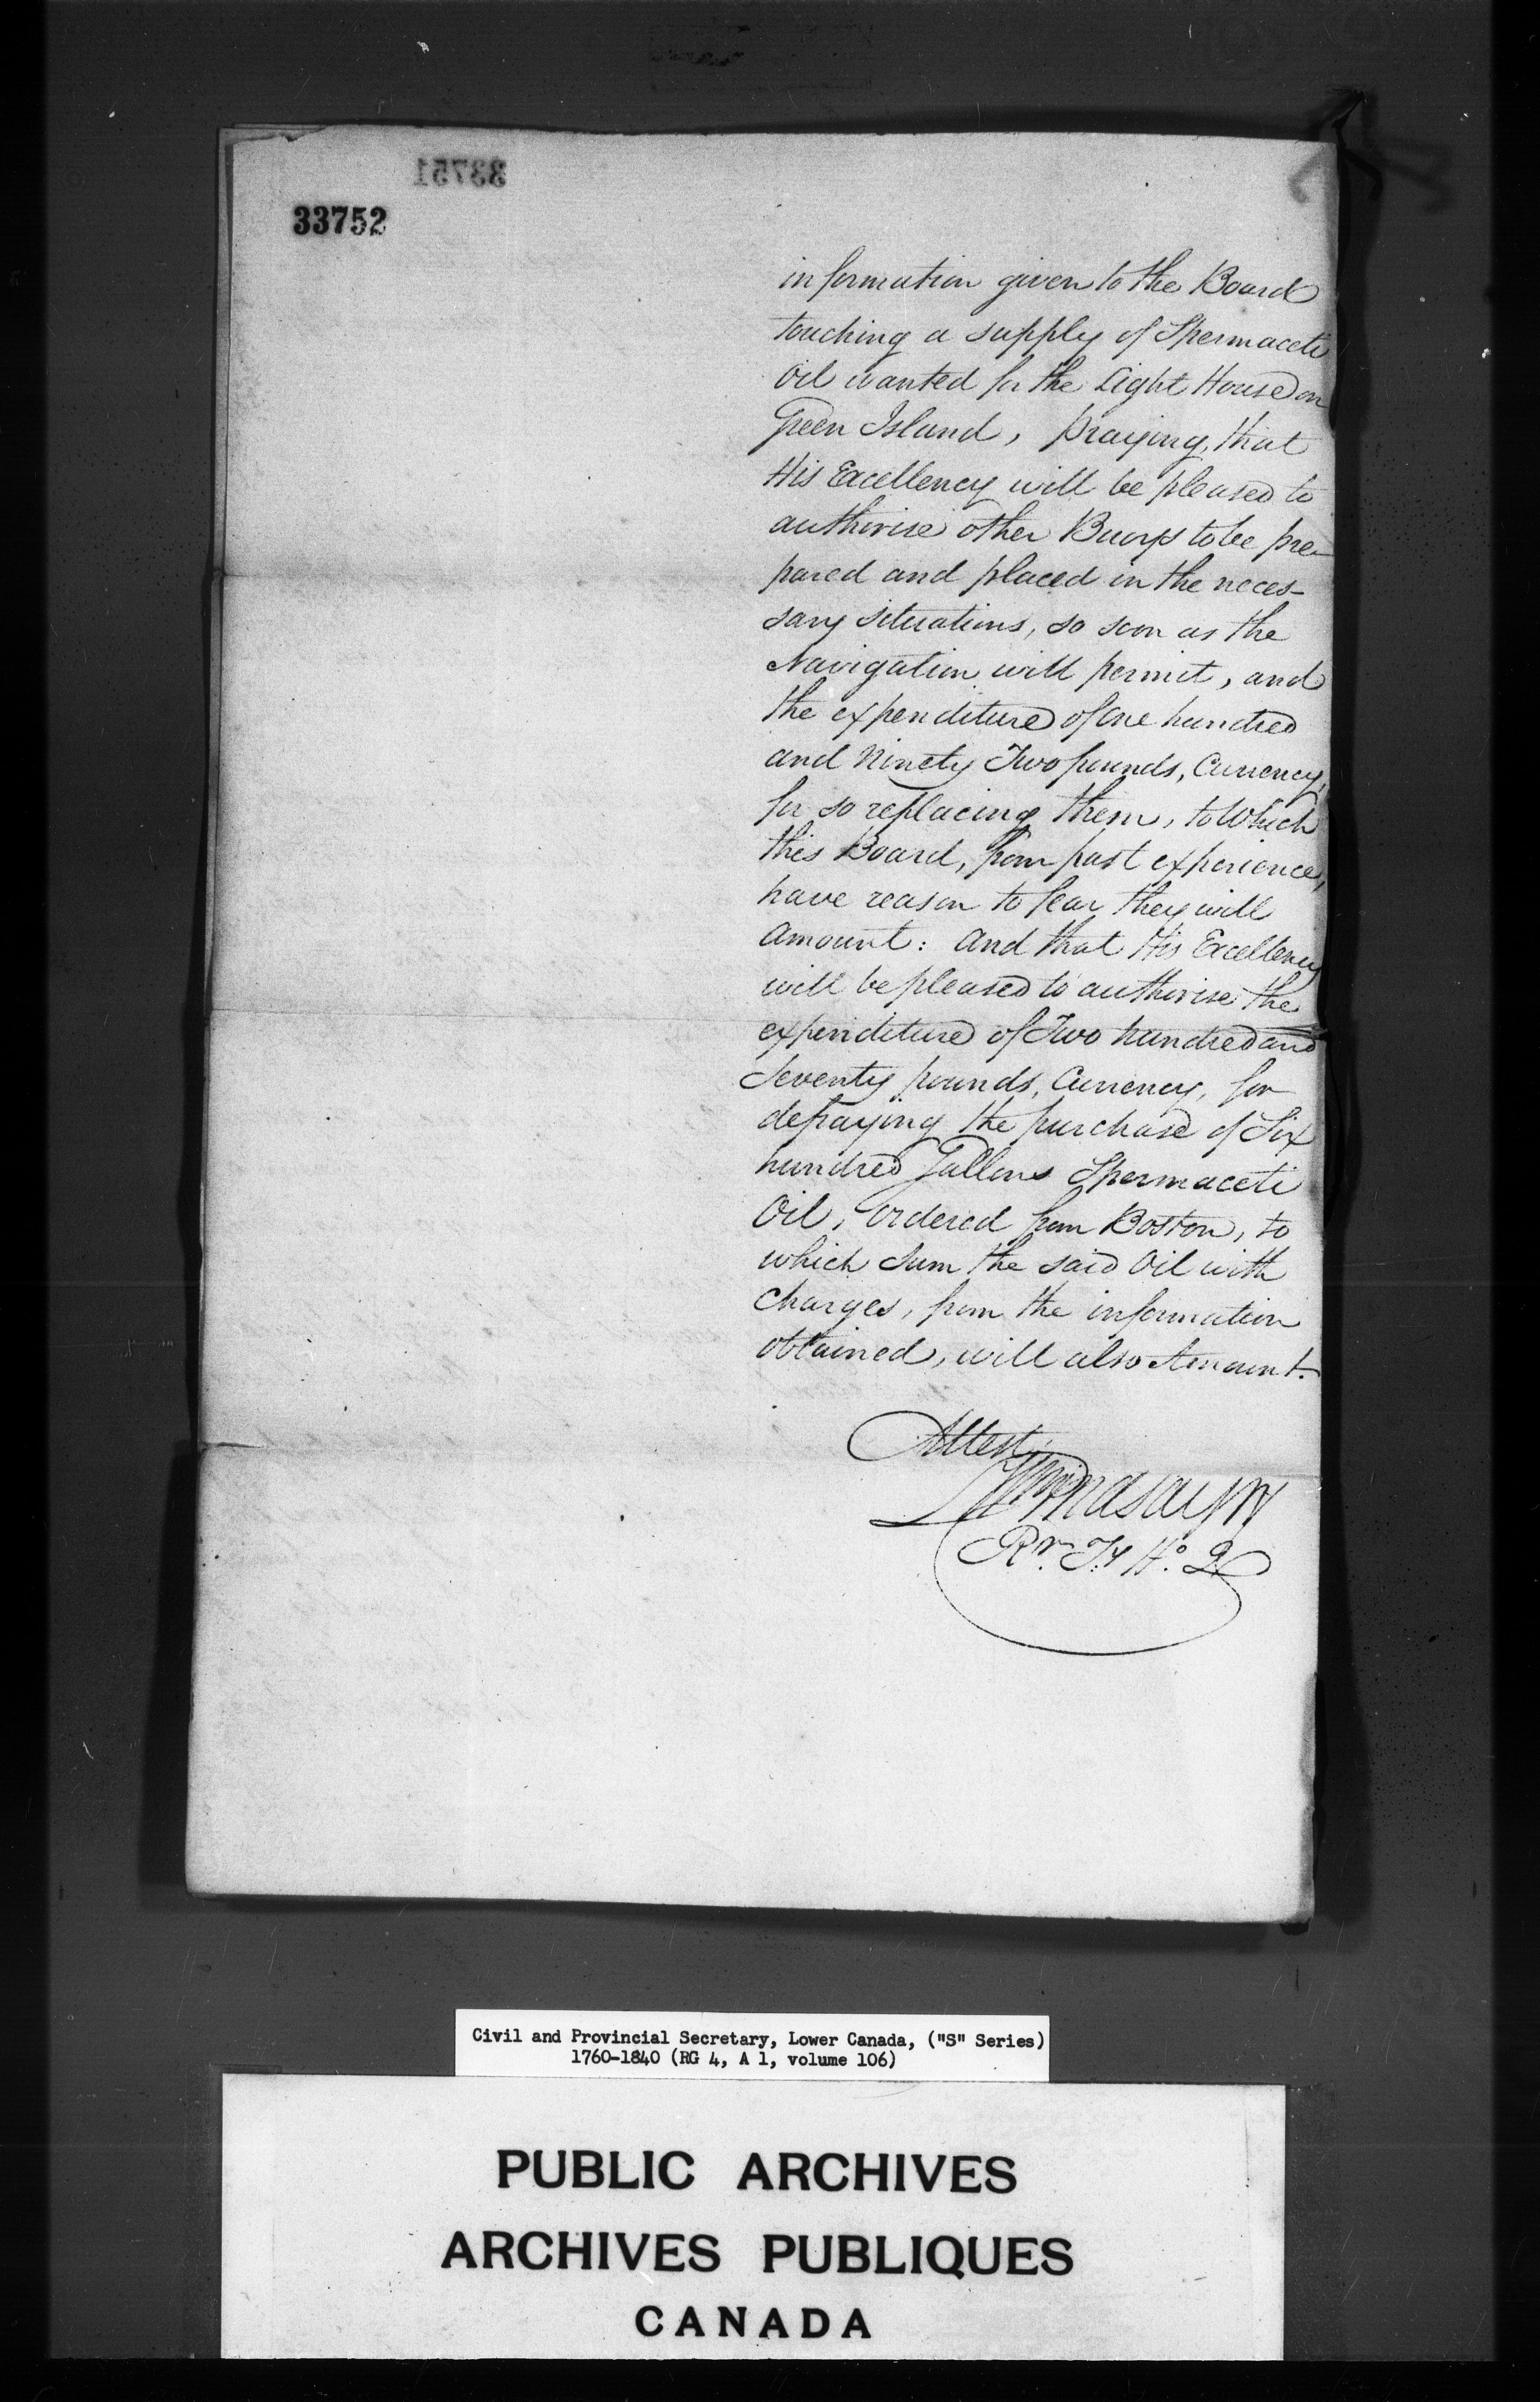 33751
33752
information given to the Board
touching a supply of Spermaceti
Oil wanted for the Light House on
Green Island, praying, that
His Excellency will be pleased to
authorise other Buoys to be pre-
pared and placed in the neces-
sary situations, so soon as the
Navigation will permit, and
the expenditure of One hundred
and Ninety Two pounds, Currency,
for so replacing them, to Which
this Board, from past experience,
have reason to fear they will
Amount: And that His Excellency
will be pleased to authorise the
expenditure of Two hundred and
Seventy pounds, Currency, for
defraying the purchase of Six
hundred Gallons Spermaceti
Oil, Ordered from Boston, to
which Sum the said Oil with
Charges, from the information
obtained, will also Amount.
Attest
Wm Lindsay
Rr. T.y H.o Q
Civil and Provincial Secretary, Lower Canada, ("S" Series)
1760-1840 (RG 4, A 1, volume 106)
PUBLIC ARCHIVES
ARCHIVES PUBLIQUES
CANADA